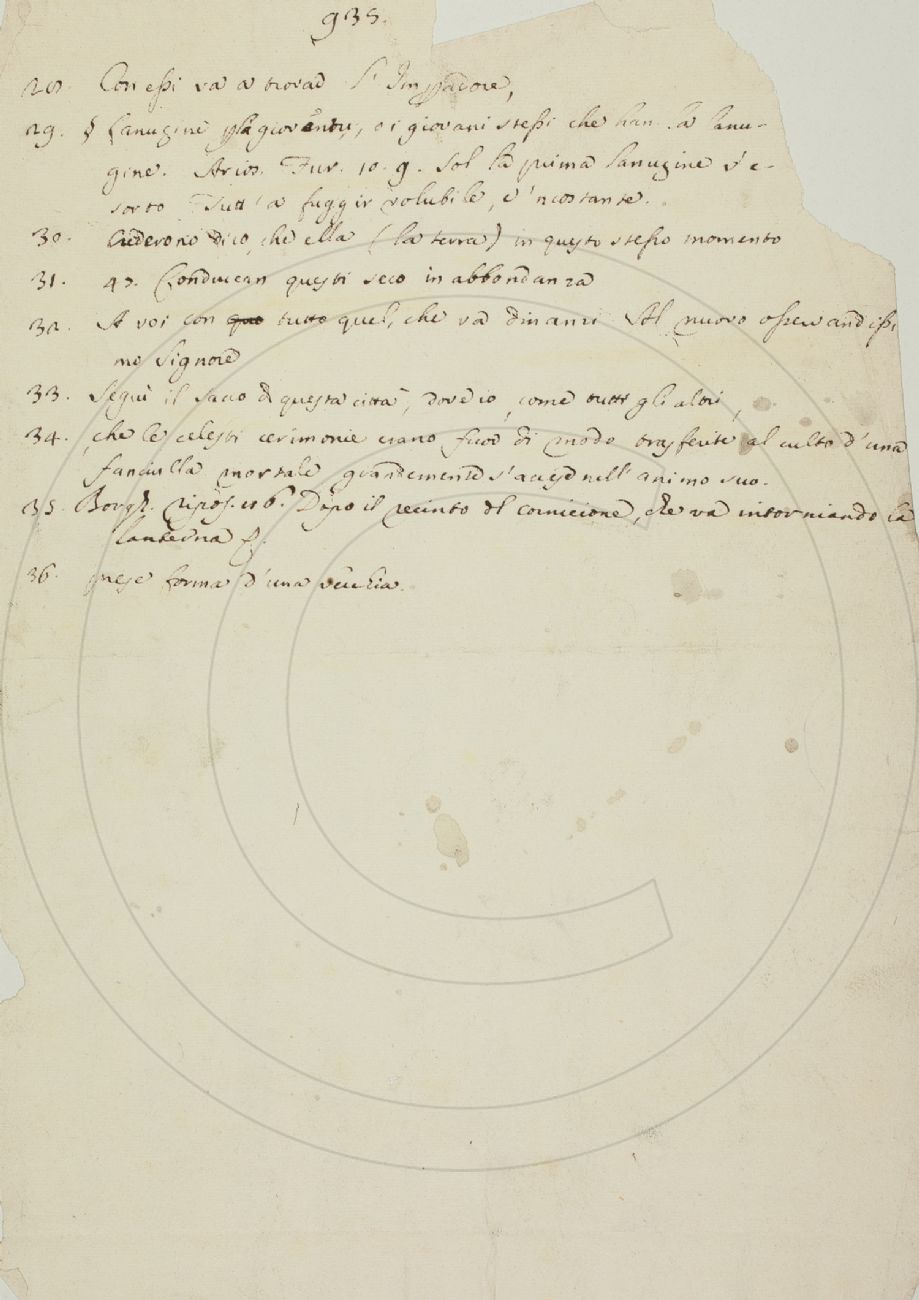 935.
28. Con essi va a trovar l'Imperadore,
29. § Lanugine p la gioventu, o i giovani stessi che han la lanu-
gine. Arios. Fur. 10. 9. Sol la prima lanugine v'e-
sorto Tutt' a fuggir volubile, e 'ncostante.
30. Crederono dico, che ella (la terra) in questo stesso momento
31. 43. Conducean questi seco in abbondanza
32. A voi con tutto quel, che va dinanzi Al nuovo osservandissi
mo Signore
33. Seguì il sacco di questa città, dove io, come tutti gli altri,
34. che le celesti cerimonie erano fuor di modo trasferite al culto d'una
fanciulla mortale grandemente s'accese nell'animo suo.
35. Borgh. Ripos. 116. Dopo il recinto del cornicione, che va intorniando la
lanterna
36. prese forma d'una vecchia.